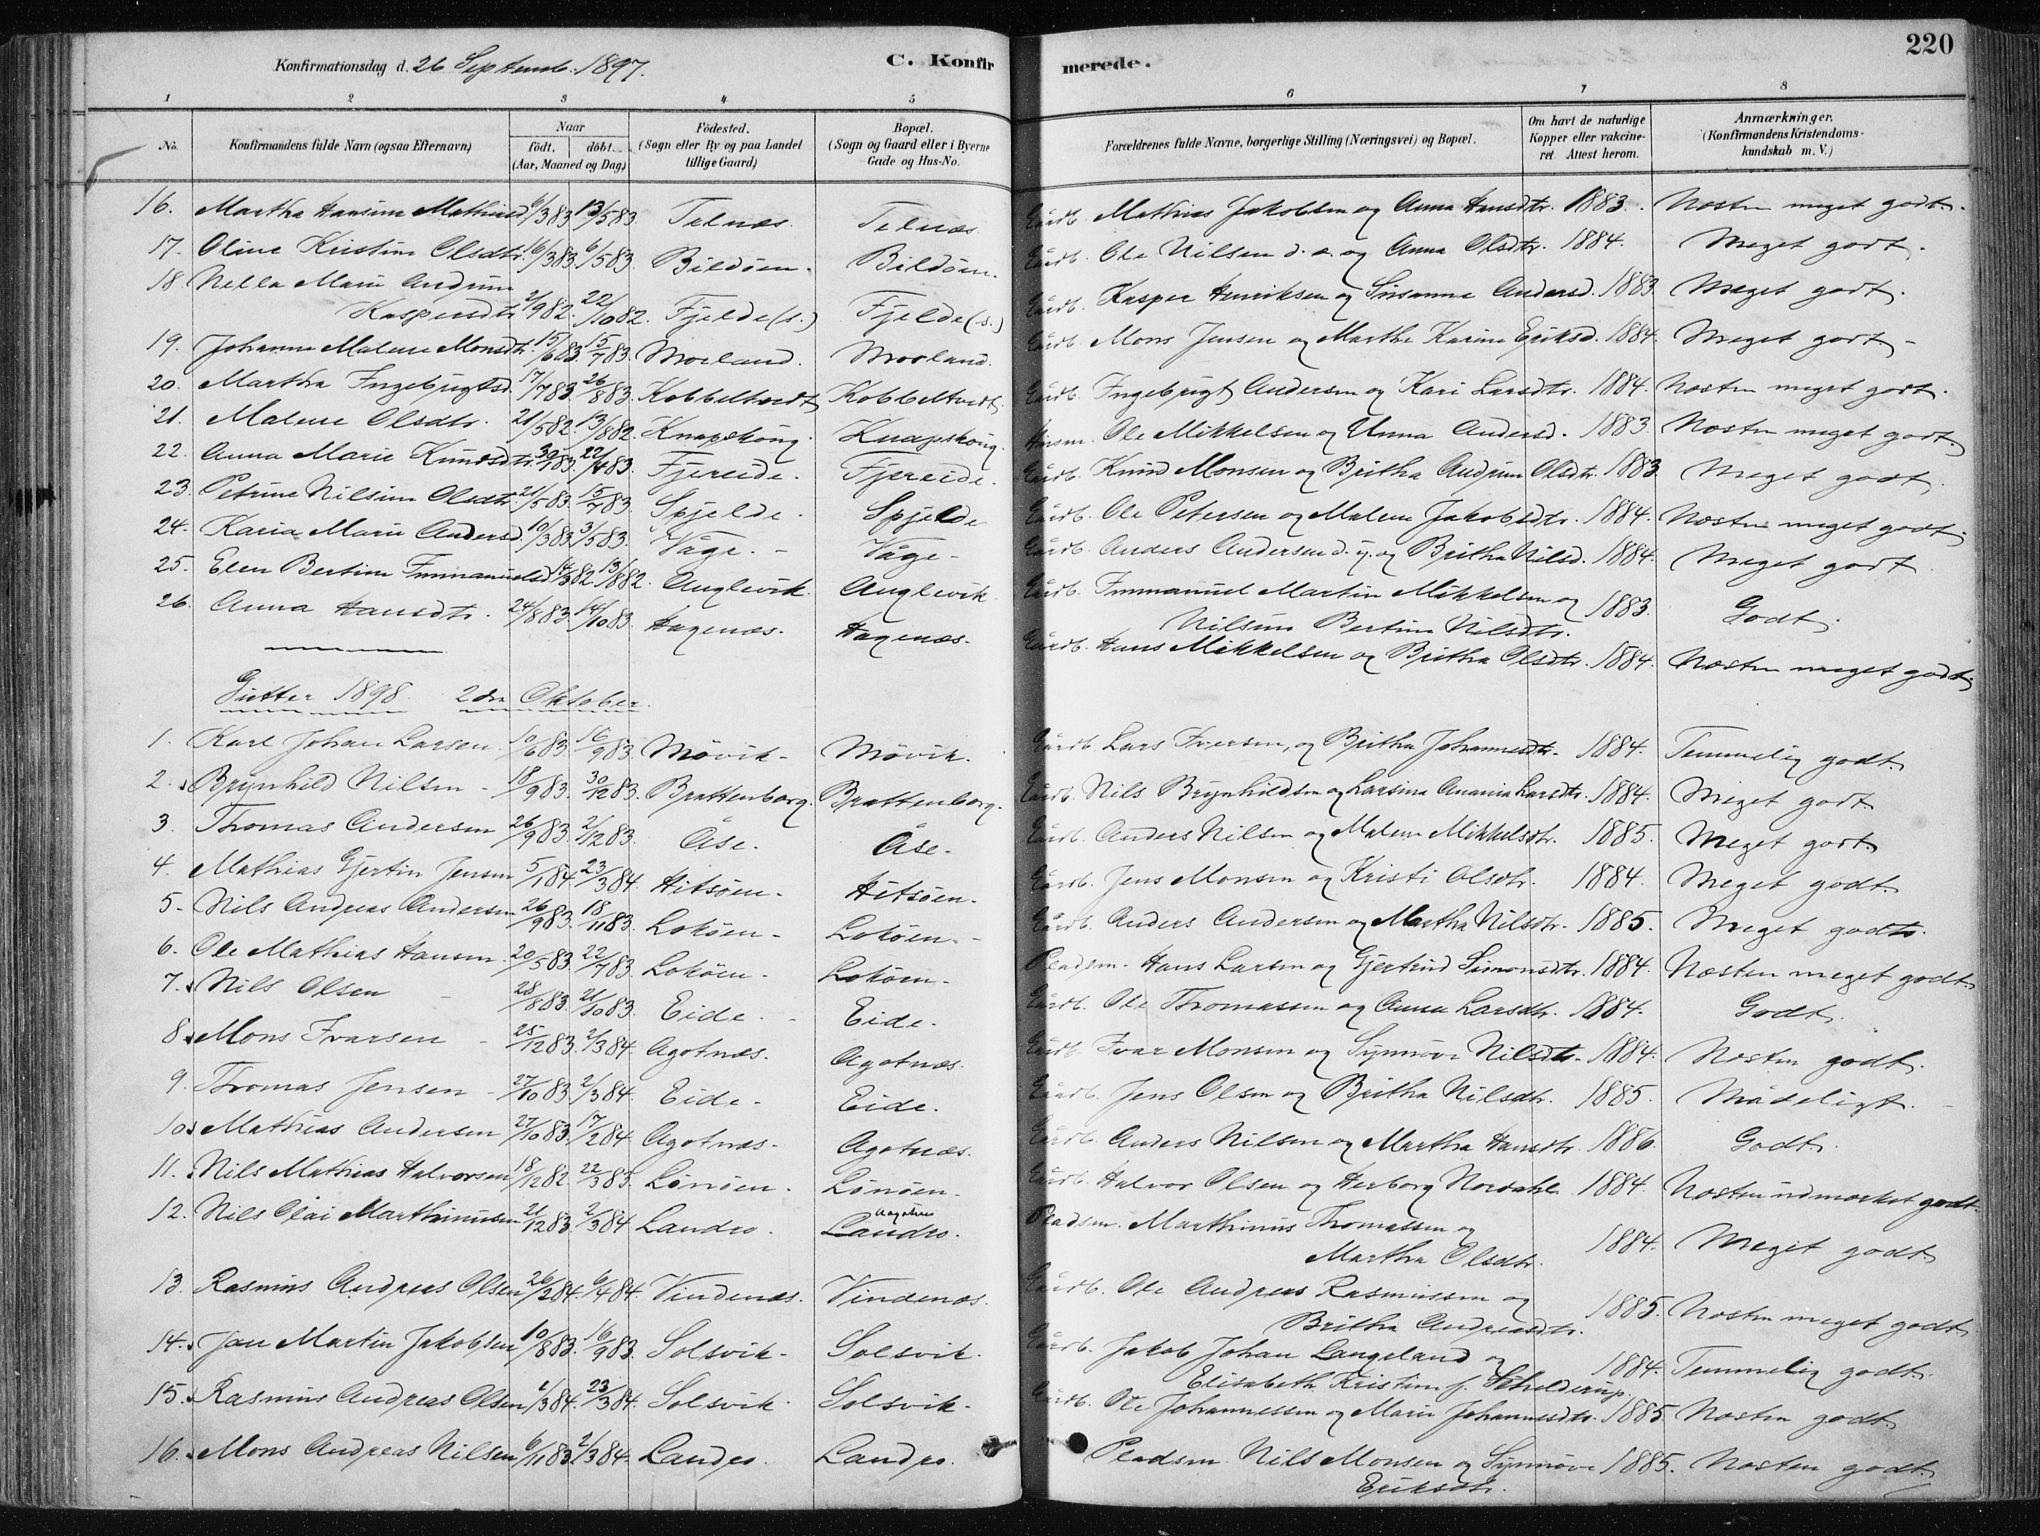 220
Konfirmationsdag d. 26 Septemb. 1897. C. Konfir merede.
1 2 3 4 5 6 7 8
No. Konfirmandens fulde Navn (ogsaa Efternavn) Naar født. døbt. (Aar, Maaned og Dag) Fødested. (Sogn eller By og paa Landet tillige Gaard) Bopæl. (Sogn og Gaard eller i Byerne Gade og Hus-No. Forældrenes fulde Navne, borgerlige Stilling (Næringsvei) og Bopæl. Om havt de naturlige Kopper eller vakcineret. Attest herom. Anmærkninger. (Konfirmandens Kristendomskundskab m. V.)
16. Martha Hansine Mathiasd. 6/3 83 13/5 83. Telnæs. Telnæs. Gårdb. Mathias Jakobsen og Anna Hansdtr. 1883. Næsten meget godt.
17. Oline Kristine Olsdtr. 16/3 83. 6/5 83. Bildøen. Bildøen. Gårdb. Ole Nilsen d. e. og Anna Olsdtr. 1884. Meget godt.
18 Nella Marie Andrine
Kaspersdtr. 2/9 82. 22/10 82. Fjelde (s.) Fjelde (s.) Gårdb. Kasper Henriksen og Susanne Andersd. 1883. Meget godt.
19. Johanne Malene Monsdtr. 15/6 83. 15/7 83. Morland. Morland. Gårdb. Mons Jensen og Marthe Karine Eriksd. 1884. Meget godt.
20. Martha Ingebrigtsd. 17/7 83. 26/8 83. Kobbeltvedt Kobbeltvedt Gårdb. Ingebrigt Andersen og Kari Larsdtr. 1884. Næsten meget godt.
21. Malene Olsdtr. 21/5 82. 13/8 82. Knapskoug. Knapskoug. Husm. Ole Mikkelsen og Unna Andersd. 1883. Næsten meget godt.
22. Anna Marie Knudsdtr. 30/1 83. 22/4 83. Fjereide. Fjereide. Gårdb. Knud Monsen og Britha Andrine Olsdtr. 1883. Meget godt.
23. Petrine Nilsine Olsdtr. 21/5 83. 15/7 83. Spjelde. Spjelde Gårdb. Ole Petersen og Malene Jakobsdtr. 1884. Næsten meget godt.
24. Karia Marie Andersd. 10/3 83. 3/5 83. Våge. Våge. Gårdb. Anders Andersen d. y. og Britha Nilsd. 1884. Meget godt.
25. Elen Bertine Immanuelsd. 14/3 82. 13/8 82. Anglevik. Anglevik. Gårdb. Immanuel Martin Mikkelsen og
Nilsine Bertine Nilsdtr. 1883. Godt.
26. Anna Hansdtr. 24/8 83. 14/10 83. Hagenæs. Hagenæs. Gårdb. Hans Mikkelsen og Britha Olsdtr. 1884. Næsten meget godt.
Gutter 1898. 2den Oktober.
1. Karl Johan Larsen. 10/6 83. 16/9 83. Møvik. Møvik. Gårdb. Lars Iversen, og Britha Johannesdtr. 1884. Temmelig godt.
2. Brynhild Nilsen 18/9 83. 30/12 83. Brattenborg. Brattenborg. Gårdb. Nils Brynhildsen og Larsina Anania Larsdtr. 1884. Meget godt.
3. Thomas Andersen 26/9 83. 2/12 83. Åse. Åse. Gårdb. Anders Nilsen og Malene Mikkelsdtr. 1885. Meget godt.
4. Mathias Gjertin Jensen 5/1 84. 23/3 84. Hitsøen. Hitsøen. Gårdb. Jens Monsen og Kristi Olsdtr. 1884. Meget godt.
5. Nils Andreas Andersen 26/9 83. 18/11 83. Lokøen. Lokøen. Gårdb. Anders Andersen og Martha Nilsdtr. 1885. Meget godt.
6. Ole Mathias Hansen. 20/5 83. 22/7 83. Lokøen. Lokøen. Pladsm. Hans Larsen og Gjertrud Simonsdtr. 1884. Næsten meget godt.
7. Nils Olsen 28/8 83. 21/10 83. Eide. Eide. Gårdb. Ole Thomassen og Anna Larsdtr. 1884. Godt.
8. Mons Ivarsen 25/12 83. 2/3 84. Agotnæs. Agotnæs. Gårdb. Ivar Monsen og Synnøve Nilsdtr. 1884. Næsten godt.
9. Thomas Jensen 27/10 83. 2/3 84. Eide. Eide. Gårdb. Jens Olsen og Britha Nilsdtr. 1885. Mådeligt.
10. Mathias Andersen 27/10 83. 17/2 84. Agotnæs. Agotnæs. Gårdb. Anders Nilsen og Martha Hansdtr. 1886. Godt.
11. Nils Mathias Halvorsen 18/12 82. 22/3 83. Lønøen. Lønøen. Gårdb. Halvor Olsen og Herborg Nordahl 1884. Næsten udmærket godt.
12. Nils Olai Marthinusen 21/12 83. 2/3 84. Landro. Landro. Pladsm. Marthinus Thomassen og
Martha Olsdtr. 1884. Meget godt.
13. Rasmus Andreas Olsen 26/2 84. 6/4 84. Vindenæs. Vindenæs. Gårdb. Ole Andreas Rasmussen og
Britha Andreasdtr. 1885. Næsten meget godt.
14. Jan Martin Jakobsen 10/8 83. 16/9 83. Solsvik. Solsvik. Gårdb. Jakob Johan Langeland og
Elisabeth Kristine f. Schelderup. 1884. Temmelig godt.
15. Rasmus Andreas Olsen 1/3 84. 23/3 84. Solsvik. Solsvik. Gårdb. Ole Johannessen og Marie Johannesdtr. 1885. Næsten godt.
16. Mons Andreas Nilsen 6/11 83. 2/3 84. Landro. Landro. Pladsm. Nils Monsen og Synnøve
Eriksdtr. 1885. Næsten godt.